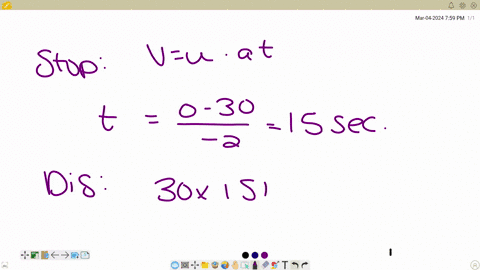 Mar-04-2024 7:59 PM 1/1
Stop: V=u · at
t = 0-30/-2 = 15 sec.
Dis: 30x 151